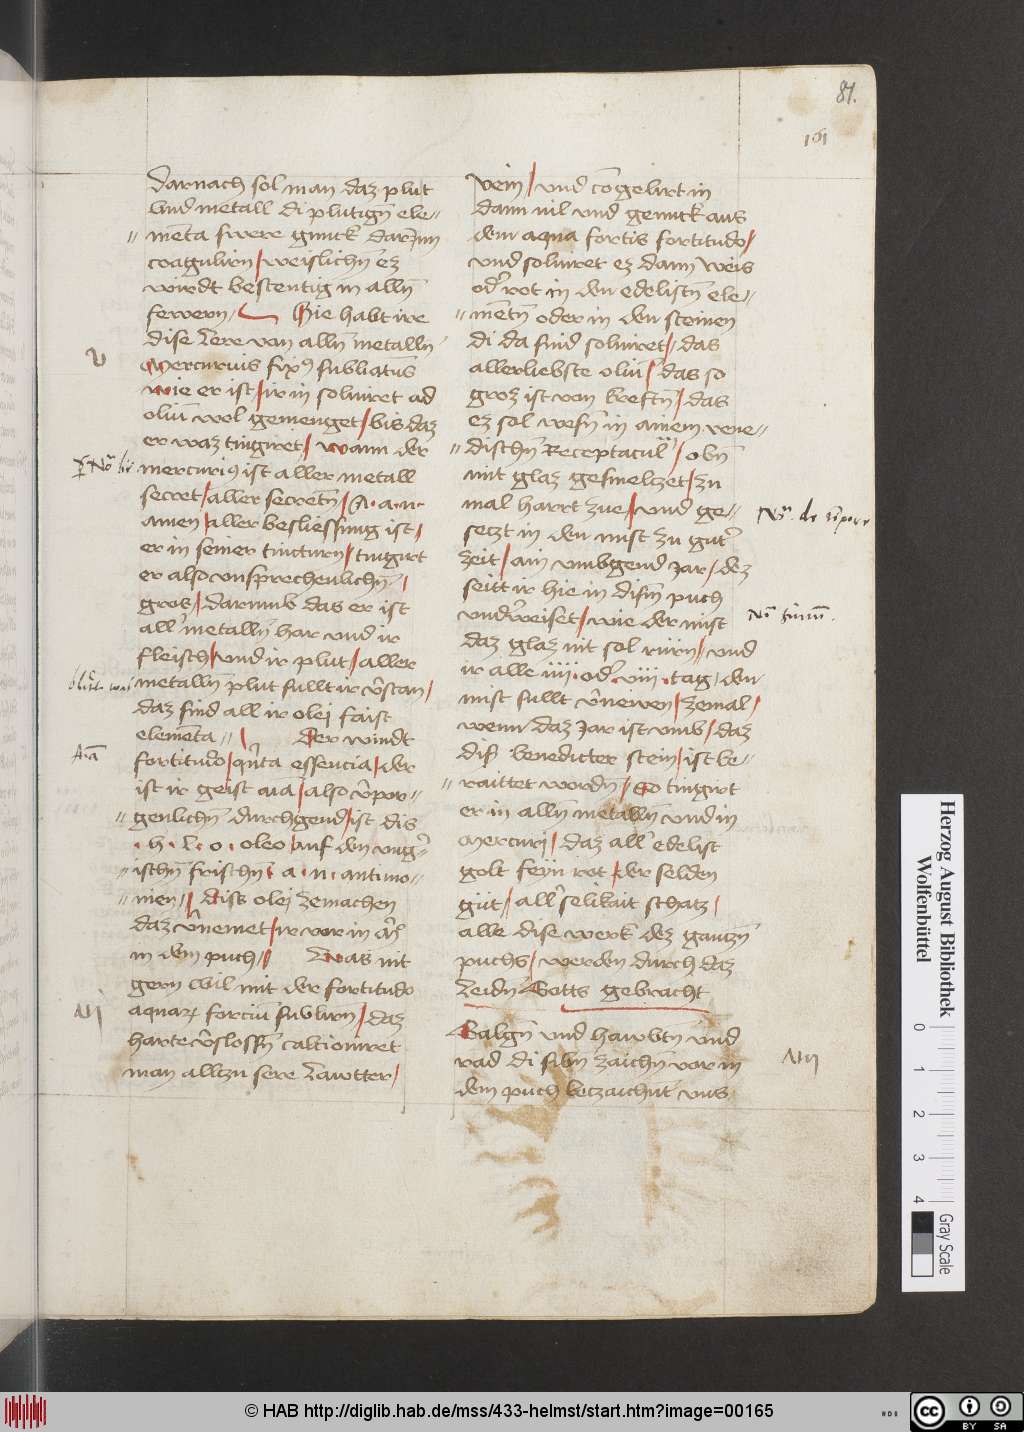 81.
161
darnach sol man daz plut
vnd metall di plutign ele=
menta swere gmick dar Inn
coagulirn / weislichn ez
wirdt bestentig in alln
fewern / Hie habt ire
dise lere von alln metalln
Mercurius fix9 sublimatus
wie er ist / ir in soluiret ad
olium wol gemenget / bis daz
er waz tingiret / wann der
mercuri9 ist aller metall
secret / aller secretn / A. a. n.
amen / aller besliessung ist /
er in seiner tincturn / tingirt
er also vnsprechenlichn /
gros / darumb das er ist
all metalln har vnd ir
fleisch / vnd ir plut / aller
metalln plut sullt ir v̄stan /
daz sind all ir olei faist
elementa // Der windt
fortitudo / quinta essencia / der
ist ir geist aīa / also v̄por=
genlichn durchgend / ist dis
.h. l. o. oleo auf den vng=
ischn frischn a. n. antimo=
nien / disk olei zemachen
daz v̄nemet / ir vor in
in dem puch // Was nit
gern wil mit der fortitudo
aquarum forcium sublirn / daz
harte v̄slossn calcioniret
man allzu sere lautter /
vein / vnd cōgelirt in
dann vil vnd genuck aus
dem aqua fortis fortitudo /
vnd soluiret ez dann weis
oder rot in den edelistn ele=
mentn oder in den steinen
di da sind soluiret / das
allerliebste olium / das so
groz ist von kreftn / das
ez sol wesn in ainem vene=
dischn Receptacul / obn
mit glaz gesmeltzet / zu
mal hartt zue / vnd ge=
setzt in den mist zu guter
zeit / ain vmbgend Jar / dez
seitt ir hie in disem puch
vnderweiset / wie der mist
daz glaz nit sol rurn / vnd
ir alle iiii. oder viii. tag / den
mist sullt v̄newen / zemal /
wenn daz Jar ist vmb / daz
diß benedicter stein / ist be=
raittet wordn / So tingirt
er in alln metalln vnd in
Mercuri / daz all edelist
golt feyn rot / der selden
gut / all selikait schatz /
alle dise werk dez gantzn
puchs / werden durch daz
leidn Gotts gebracht
Galgn vnd hawbtn vnd
rad di sibn zaichn vor in
dem puch betzaichnt vns
Herzog August Bibliothek
Wolfenbüttel
0 1 2 3 4
Gray Scale
© HAB http://diglib.hab.de/mss/433-helmst/start.htm?image=00165
HDB
CC BY SA